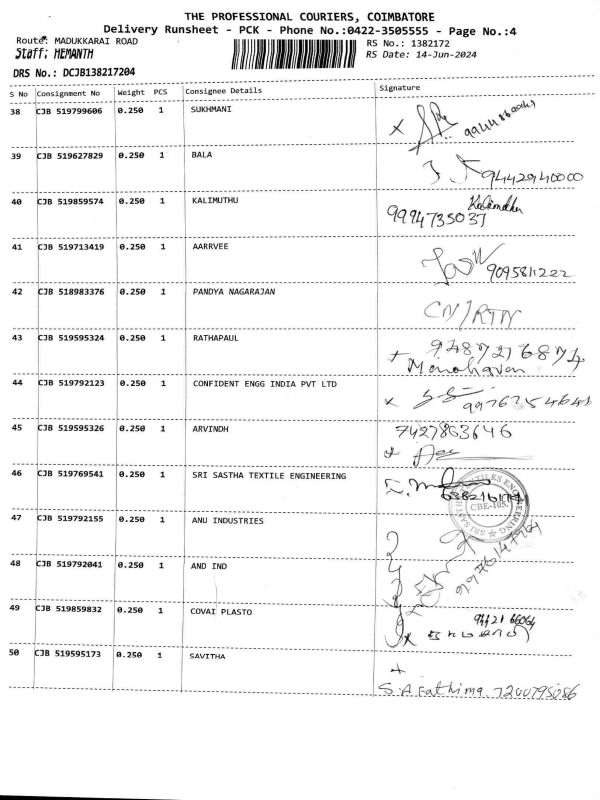 THE PROFESSIONAL COURIERS, COIMBATORE
Delivery Runsheet - PCK - Phone No.:0422-3505555 - Page No.:4
Route: MADUKKARAI ROAD
RS No.: 1382172
Staff: HEMANTH
RS Date: 14-Jun-2024
DRS No.: DCJB138217204
S No Consignment No Weight PCS Consignee Details Signature
38 CJB 519799606 0.250 1 SUKHMANI
39 CJB 519627829 0.250 1 BALA
9442940000
40 CJB 519859574 0.250 1 KALIMUTHU
9994735037
41 CJB 519713419 0.250 1 AARRVEE
9095811222
42 CJB 518983376 0.250 1 PANDYA NAGARAJAN
CN/RTN
43 CJB 519595324 0.250 1 RATHAPAUL
9487276874
Manoharan
44 CJB 519792123 0.250 1 CONFIDENT ENGG INDIA PVT LTD
x
45 CJB 519595326 0.250 1 ARVINDH
7427863646
46 CJB 519769541 0.250 1 SRI SASTHA TEXTILE ENGINEERING
CBE-105.
47 CJB 519792155 0.250 1 ANU INDUSTRIES
48 CJB 519792041 0.250 1 AND IND
49 CJB 519859832 0.250 1 COVAI PLASTO
94421 66064
50 CJB 519595173 0.250 1 SAVITHA
S.A Fathima. 7200795086